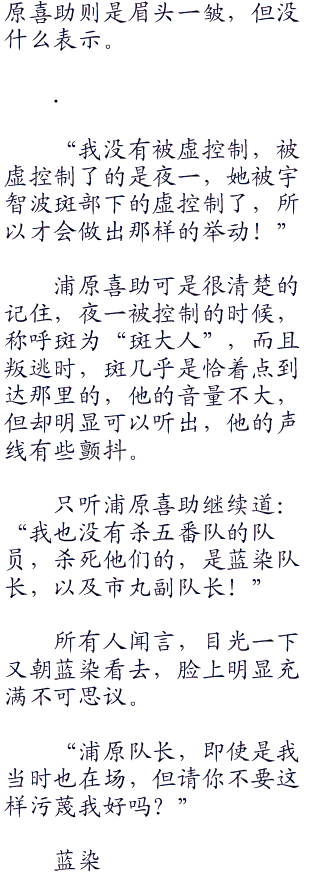 原喜助则是眉头一皱，但没
什么表示。
.
“我没有被虚控制，被
虚控制了的是夜一，她被宇
智波斑部下的虚控制了，所
以才会做出那样的举动！”
浦原喜助可是很清楚的
记住，夜一被控制的时候，
称呼斑为“斑大人”，而且
叛逃时，斑几乎是恰着点到
达那里的，他的音量不大，
但却明显可以听出，他的声
线有些颤抖。
只听浦原喜助继续道：
“我也没有杀五番队的队
员，杀死他们的，是蓝染队
长，以及市丸副队长！”
所有人闻言，目光一下
又朝蓝染看去，脸上明显充
满不可思议。
“浦原队长，即使是我
当时也在场，但请你不要这
样污蔑我好吗？”
蓝染